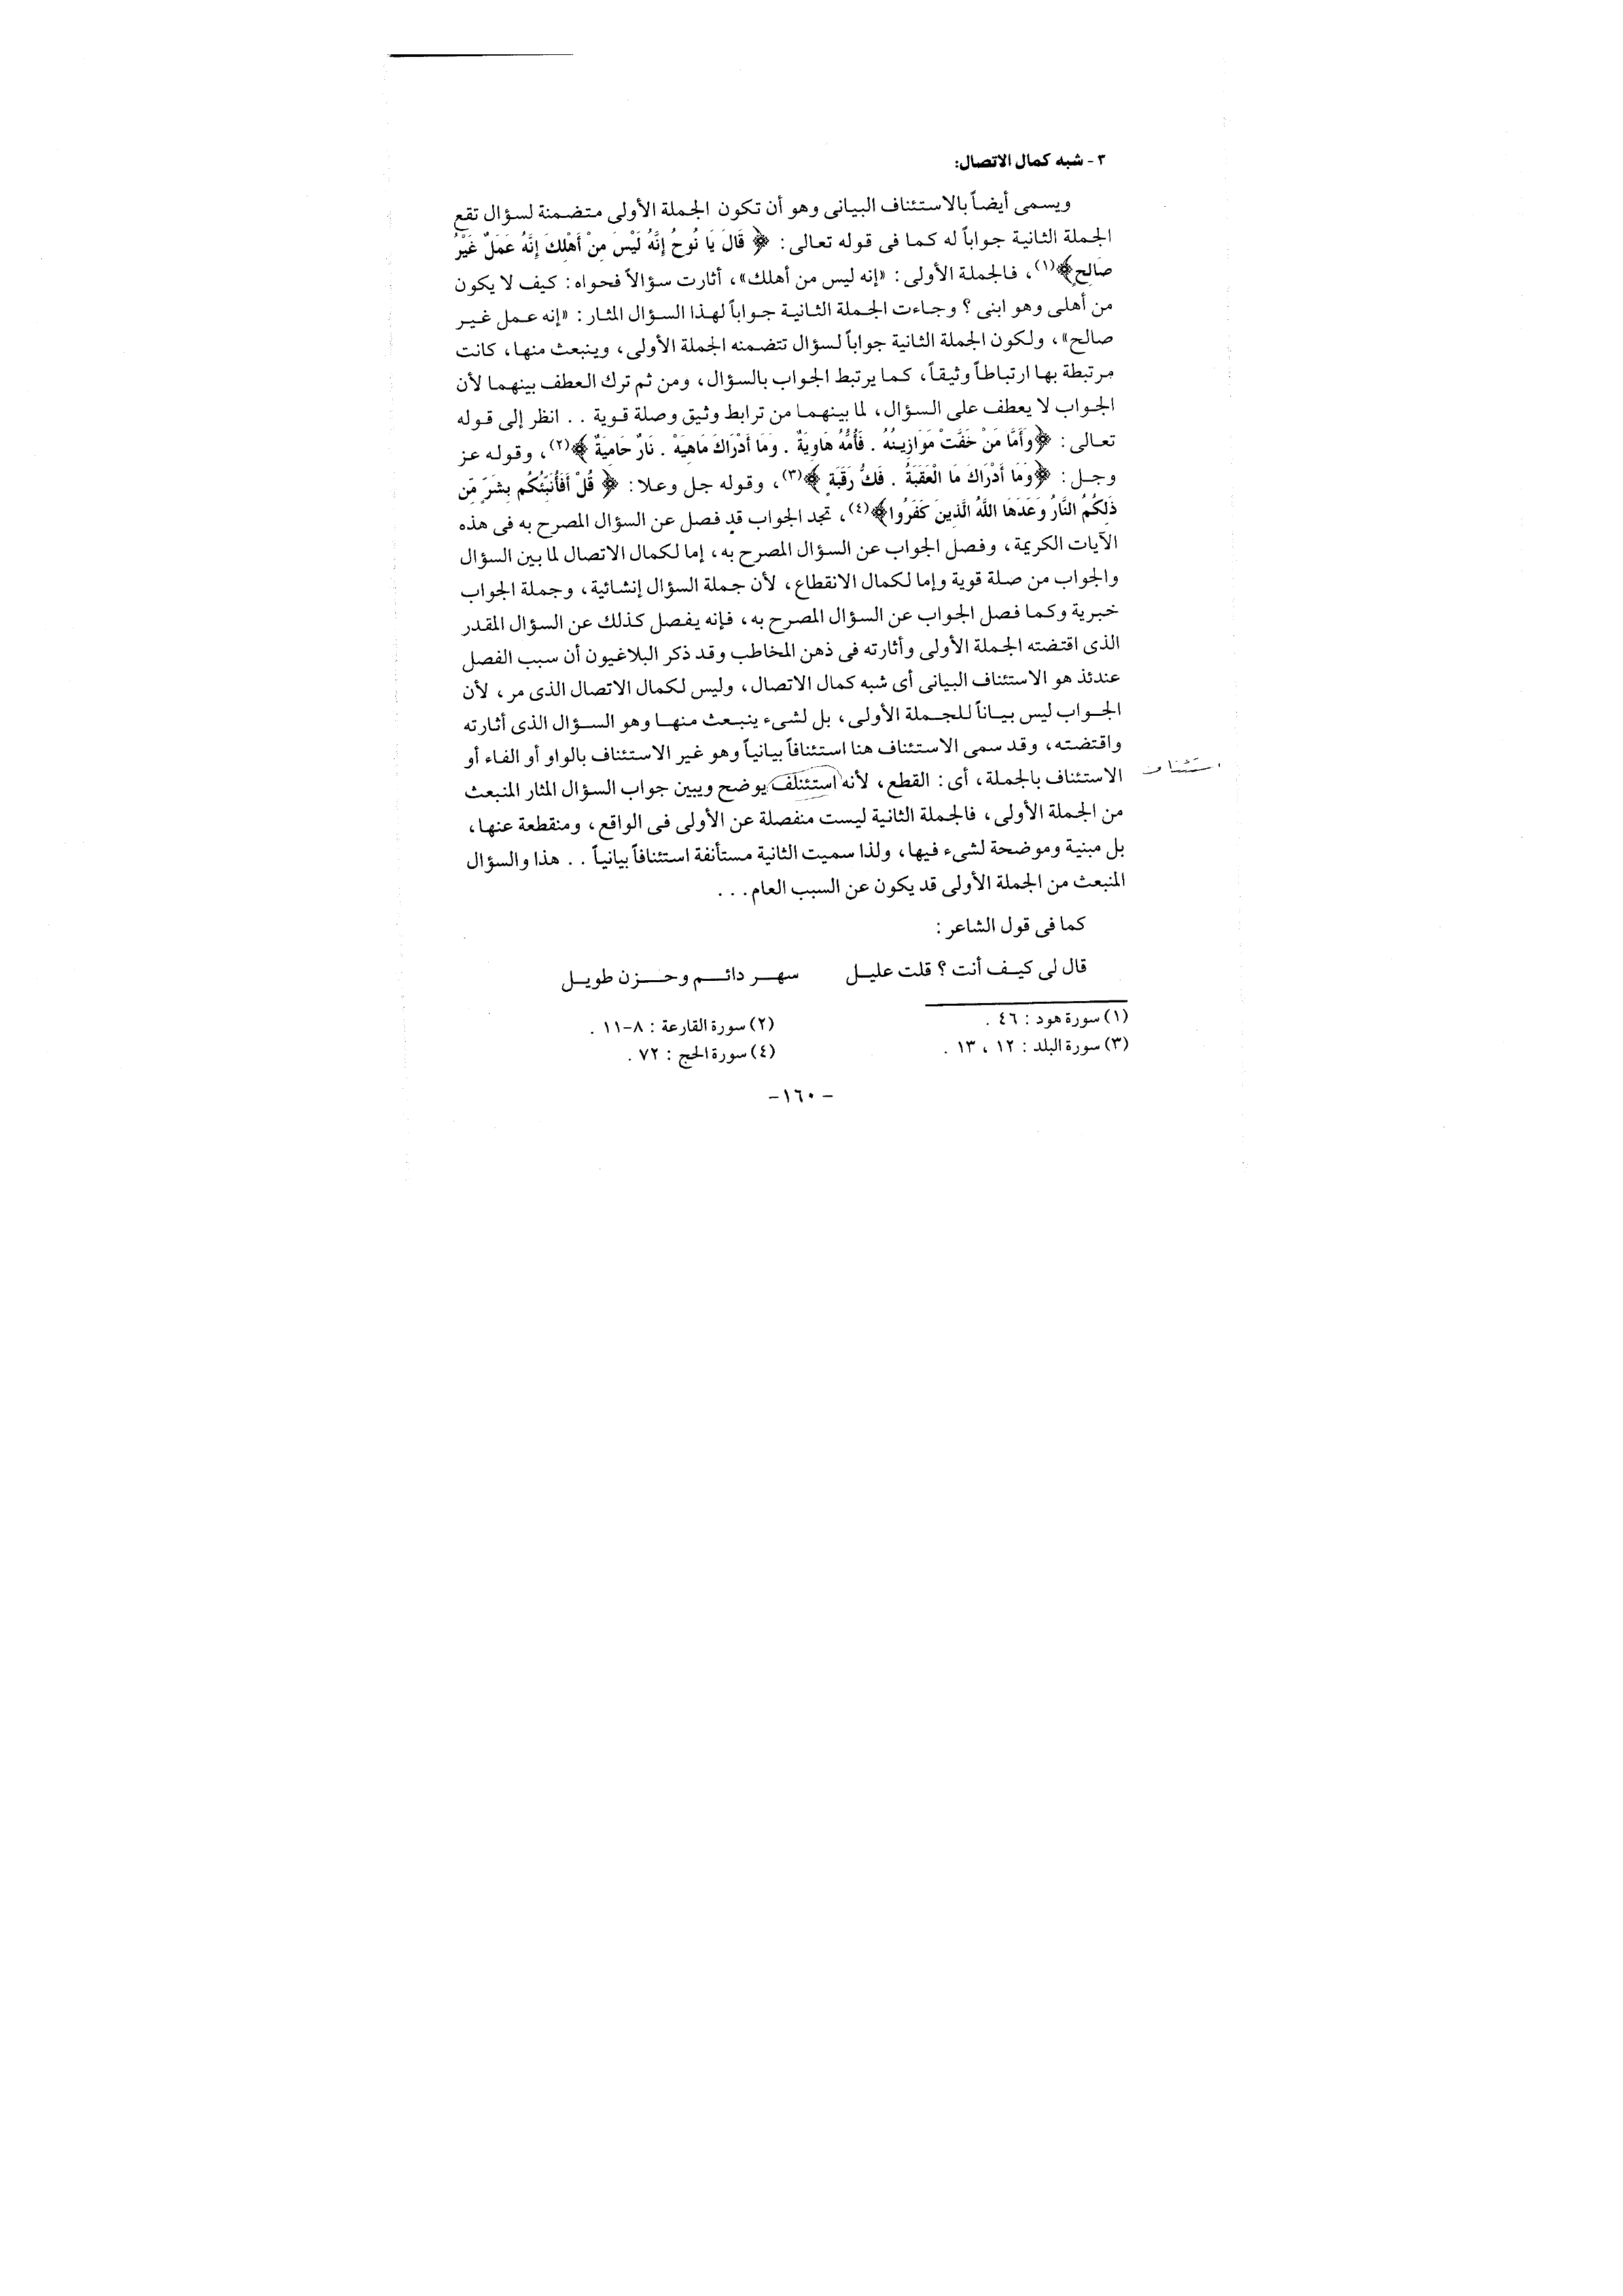 ٣ - شبه كمال الاتصال:
ويسمى أيضاً بالاستئناف البيانى وهو أن تكون الجملة الأولى متضمنة لسؤال تقع
الجملة الثانية جواباً له كما فى قوله تعالى: ﴿ قَالَ يَا نُوحُ إِنَّهُ لَيْسَ مِنْ أَهْلِكَ إِنَّهُ عَمَلٌ غَيْرُ
صَالِحٍ﴾(١)، فالجملة الأولى: «إنه ليس من أهلك»، أثارت سؤالاً فحواه: كيف لا يكون
من أهلى وهو ابنى ؟ وجاءت الجملة الثانية جواباً لهذا السؤال المثار: «إنه عمل غير
صالح»، ولكون الجملة الثانية جواباً لسؤال تتضمنه الجملة الأولى، وينبعث منها، كانت
مرتبطة بها ارتباطاً وثيقاً، كما يرتبط الجواب بالسؤال، ومن ثم ترك العطف بينهما لأن
الجواب لا يعطف على السؤال، لما بينهما من ترابط وثيق وصلة قوية .. انظر إلى قوله
تعالى: ﴿وَأَمَّا مَنْ خَفَّتْ مَوَازِينُهُ . فَأُمُّهُ هَاوِيَةٌ . وَمَا أَدْرَاكَ مَاهِيَهْ . نَارٌ حَامِيَةٌ ﴾(٢)، وقوله عز
وجل: ﴿وَمَا أَدْرَاكَ مَا الْعَقَبَةُ . فَكُّ رَقَبَةٍ ﴾(٣)، وقوله جل وعلا: ﴿ قُلْ أَفَأُنَبِّئُكُم بِشَرٍّ مِّن
ذَلِكُمُ النَّارُ وَعَدَهَا اللَّهُ الَّذِينَ كَفَرُوا﴾(٤)، تجد الجواب قد فصل عن السؤال المصرح به فى هذه
الآيات الكريمة، وفصل الجواب عن السؤال المصرح به، إما لكمال الاتصال لما بين السؤال
والجواب من صلة قوية وإما لكمال الانقطاع، لأن جملة السؤال إنشائية، وجملة الجواب
خبرية وكما فصل الجواب عن السؤال المصرح به، فإنه يفصل كذلك عن السؤال المقدر
الذى اقتضته الجملة الأولى وأثارته فى ذهن المخاطب وقد ذكر البلاغيون أن سبب الفصل
عندئذ هو الاستئناف البيانى أى شبه كمال الاتصال، وليس لكمال الاتصال الذى مر، لأن
الجواب ليس بياناً للجملة الأولى، بل لشىء ينبعث منها وهو السؤال الذى أثارته
واقتضته، وقد سمى الاستئناف هنا استئنافاً بيانياً وهو غير الاستئناف بالواو أو الفاء أو
الاستئناف بالجملة، أى: القطع، لأنه استئنلف يوضح ويبين جواب السؤال المثار المنبعث
استئناف
من الجملة الأولى، فالجملة الثانية ليست منفصلة عن الأولى فى الواقع، ومنقطعة عنها،
بل مبنية وموضحة لشىء فيها، ولذا سميت الثانية مستأنفة استئنافاً بيانياً .. هذا والسؤال
المنبعث من الجملة الأولى قد يكون عن السبب العام...
كما فى قول الشاعر:
قال لى كيف أنت ؟ قلت عليل سهر دائم وحزن طويل
(١) سورة هود : ٤٦ . (٢) سورة القارعة : ٨-١١ .
(٣) سورة البلد : ١٢ ، ١٣ . (٤) سورة الحج : ٧٢ .
- ١٦٠-